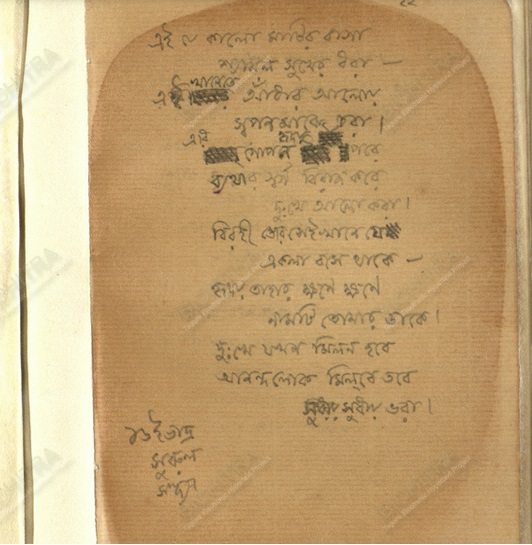 এই যে কালো মাটির বাসা
শ্যামল সুখের ধরা —
এইখানেতে আঁধার আলোয়
স্বপন মাঝে চরা।
এরি গোপন হৃদয় পরে
ব্যথার স্বর্গ বিরাজ করে
দুঃখে আলো করা।
বিরহী তোর সেইখানে যে
একলা বসে থাকে —
হৃদয় তাহার ক্ষণে ক্ষণে
নামটি তোমার ডাকে।
দুঃখে যখন মিলন হবে
আনন্দলোক মিলবে তবে
সুধায় সুধায় ভরা।
১৬ই ভাদ্র
সুরুল
সন্ধ্যা